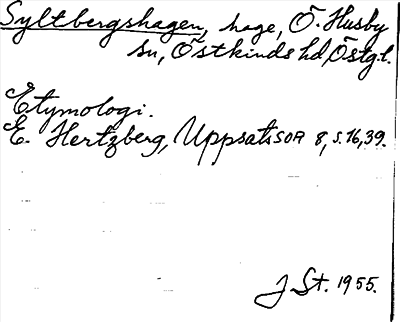 Syltbergshagen, hage, Ö. Husby
sn, Östkinds hd Östg.l.
Etymologi.
E. Hertzberg, Uppsatsson 8, s. 16, 39.
J St. 1955.